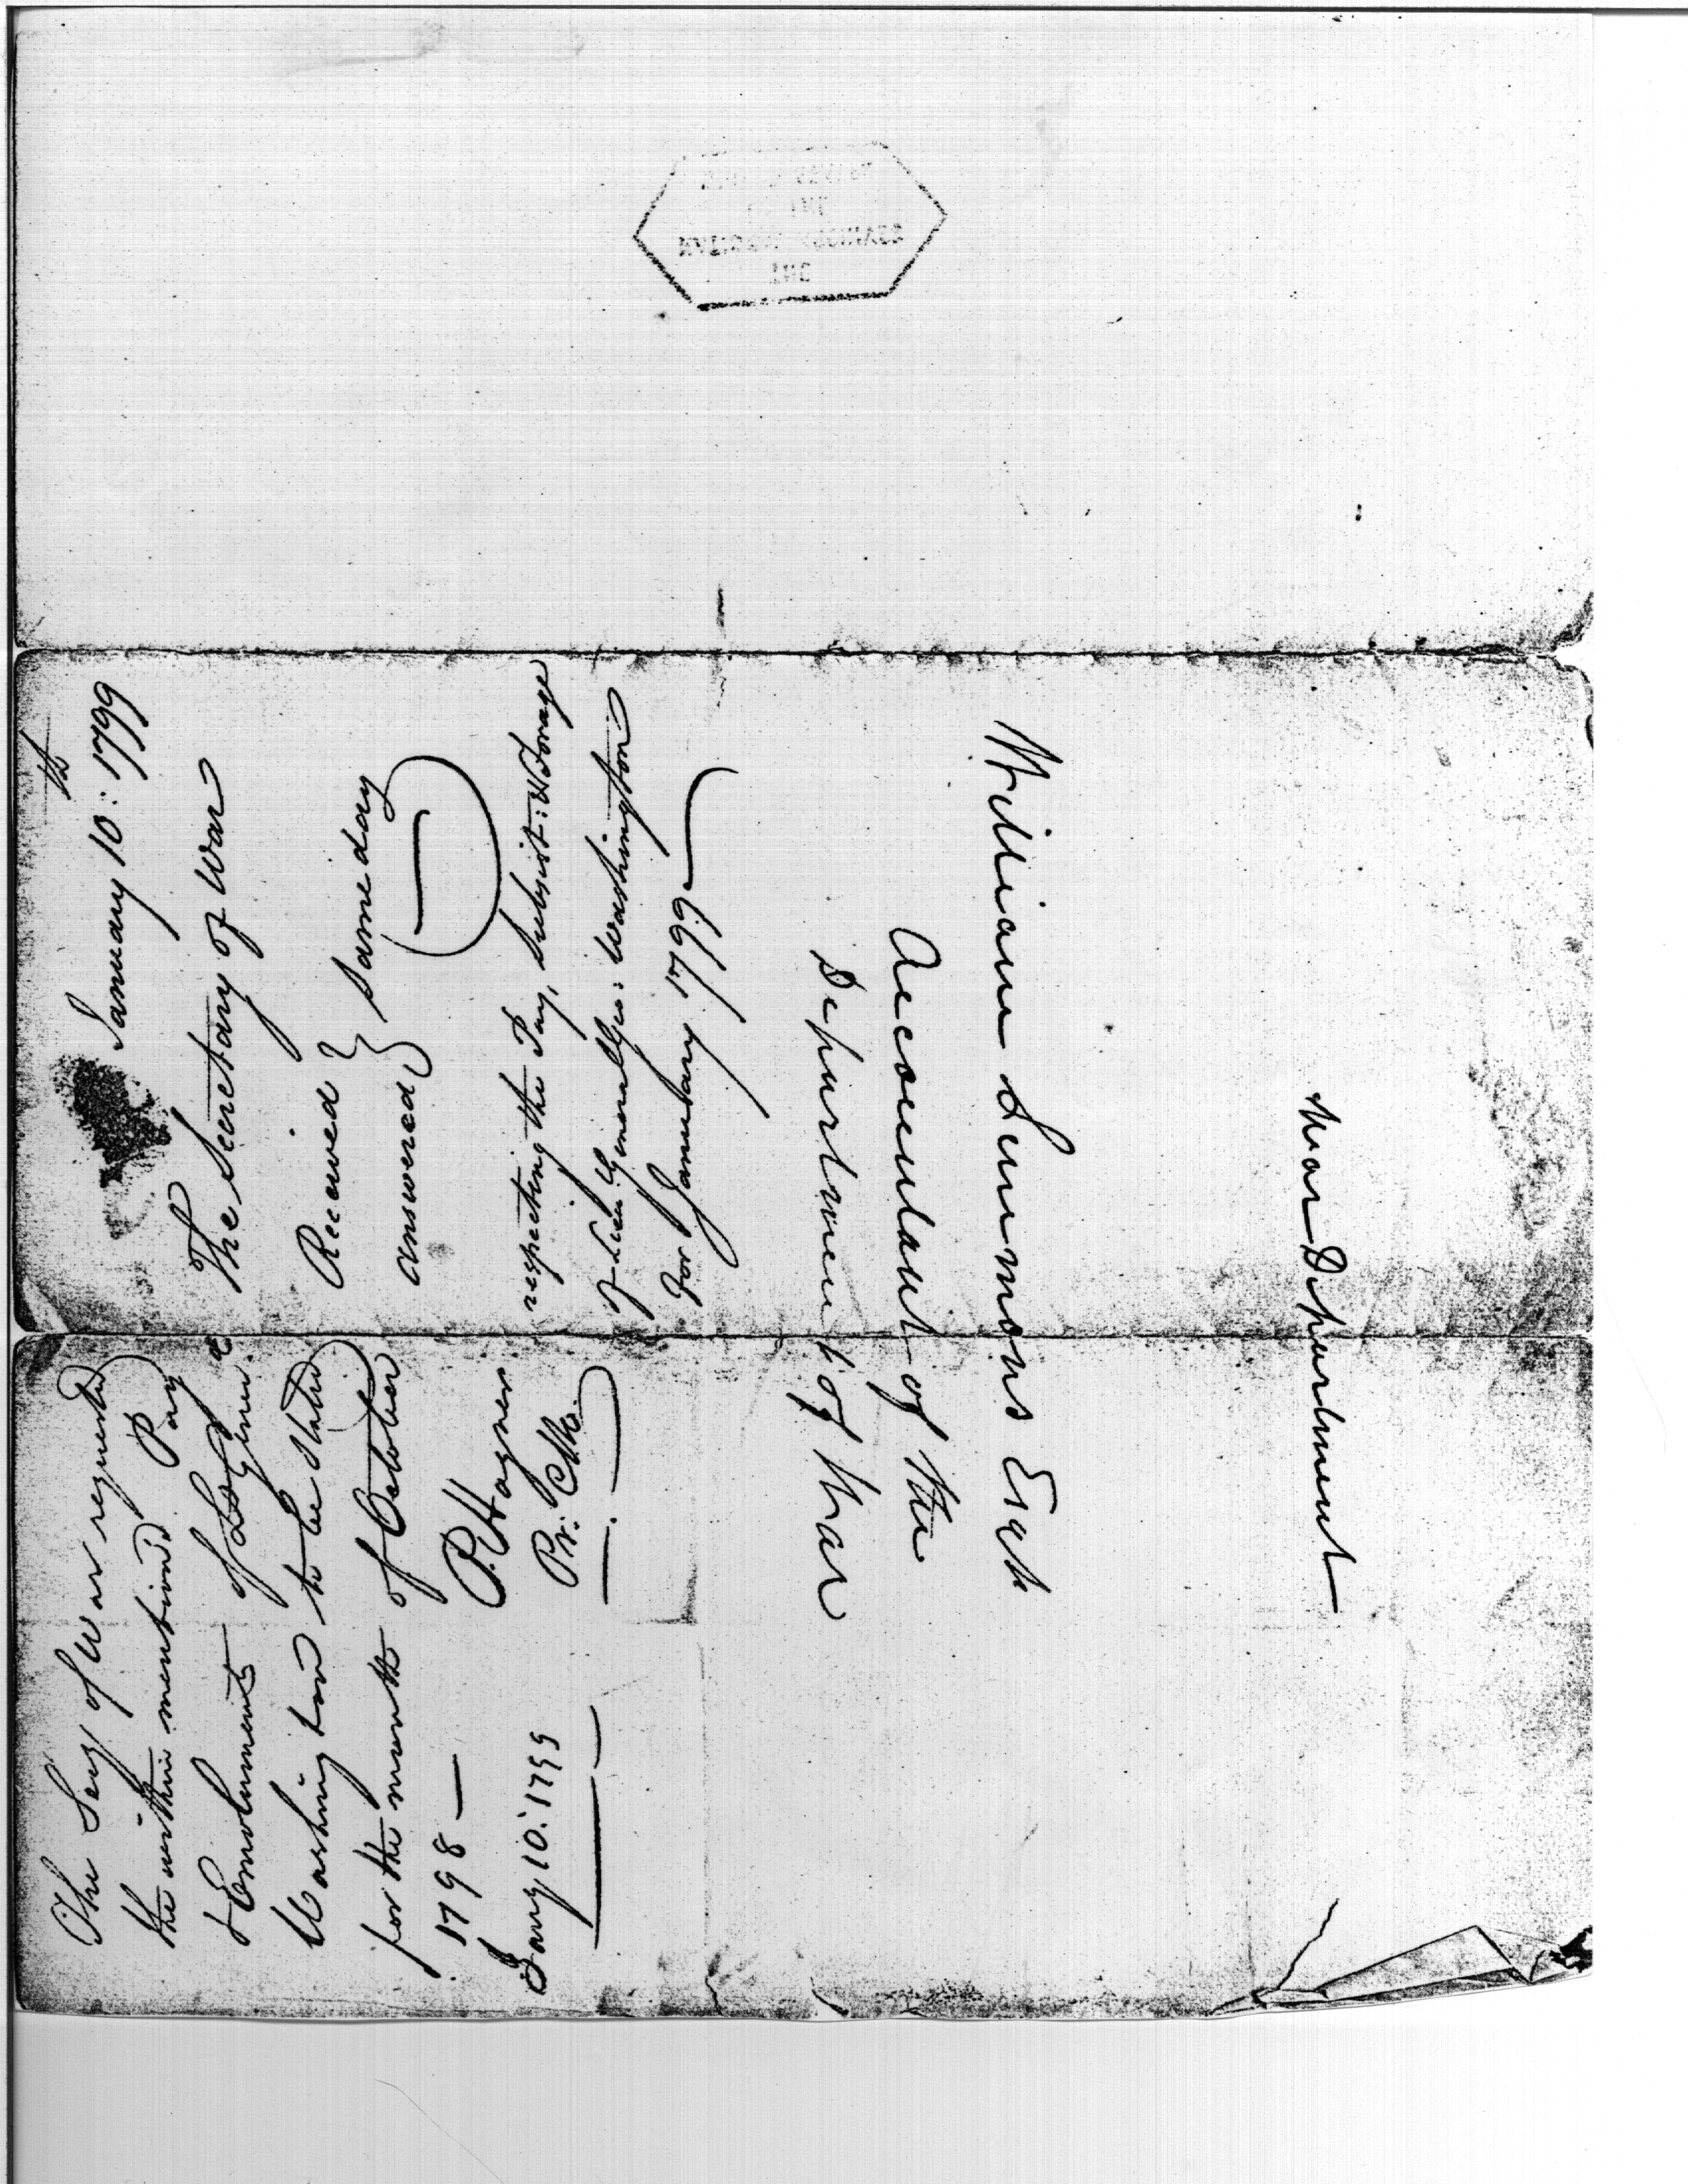 The Secy of War requested
the within mentioned Pay
& Emoluments of Lt Genl
Washington to be stated
for the month of October
1798 —
P. Hagner
Pr. Clk.
Jany 10. 1799
January 10th: 1799
The Secretary of War
Received } same day
answered
respecting the Pay, Subsist: & Forage
of Lieu: General Geo: Washington
for January 1799
William Simmons Esqr
Accountant of the
Department of War
War Department